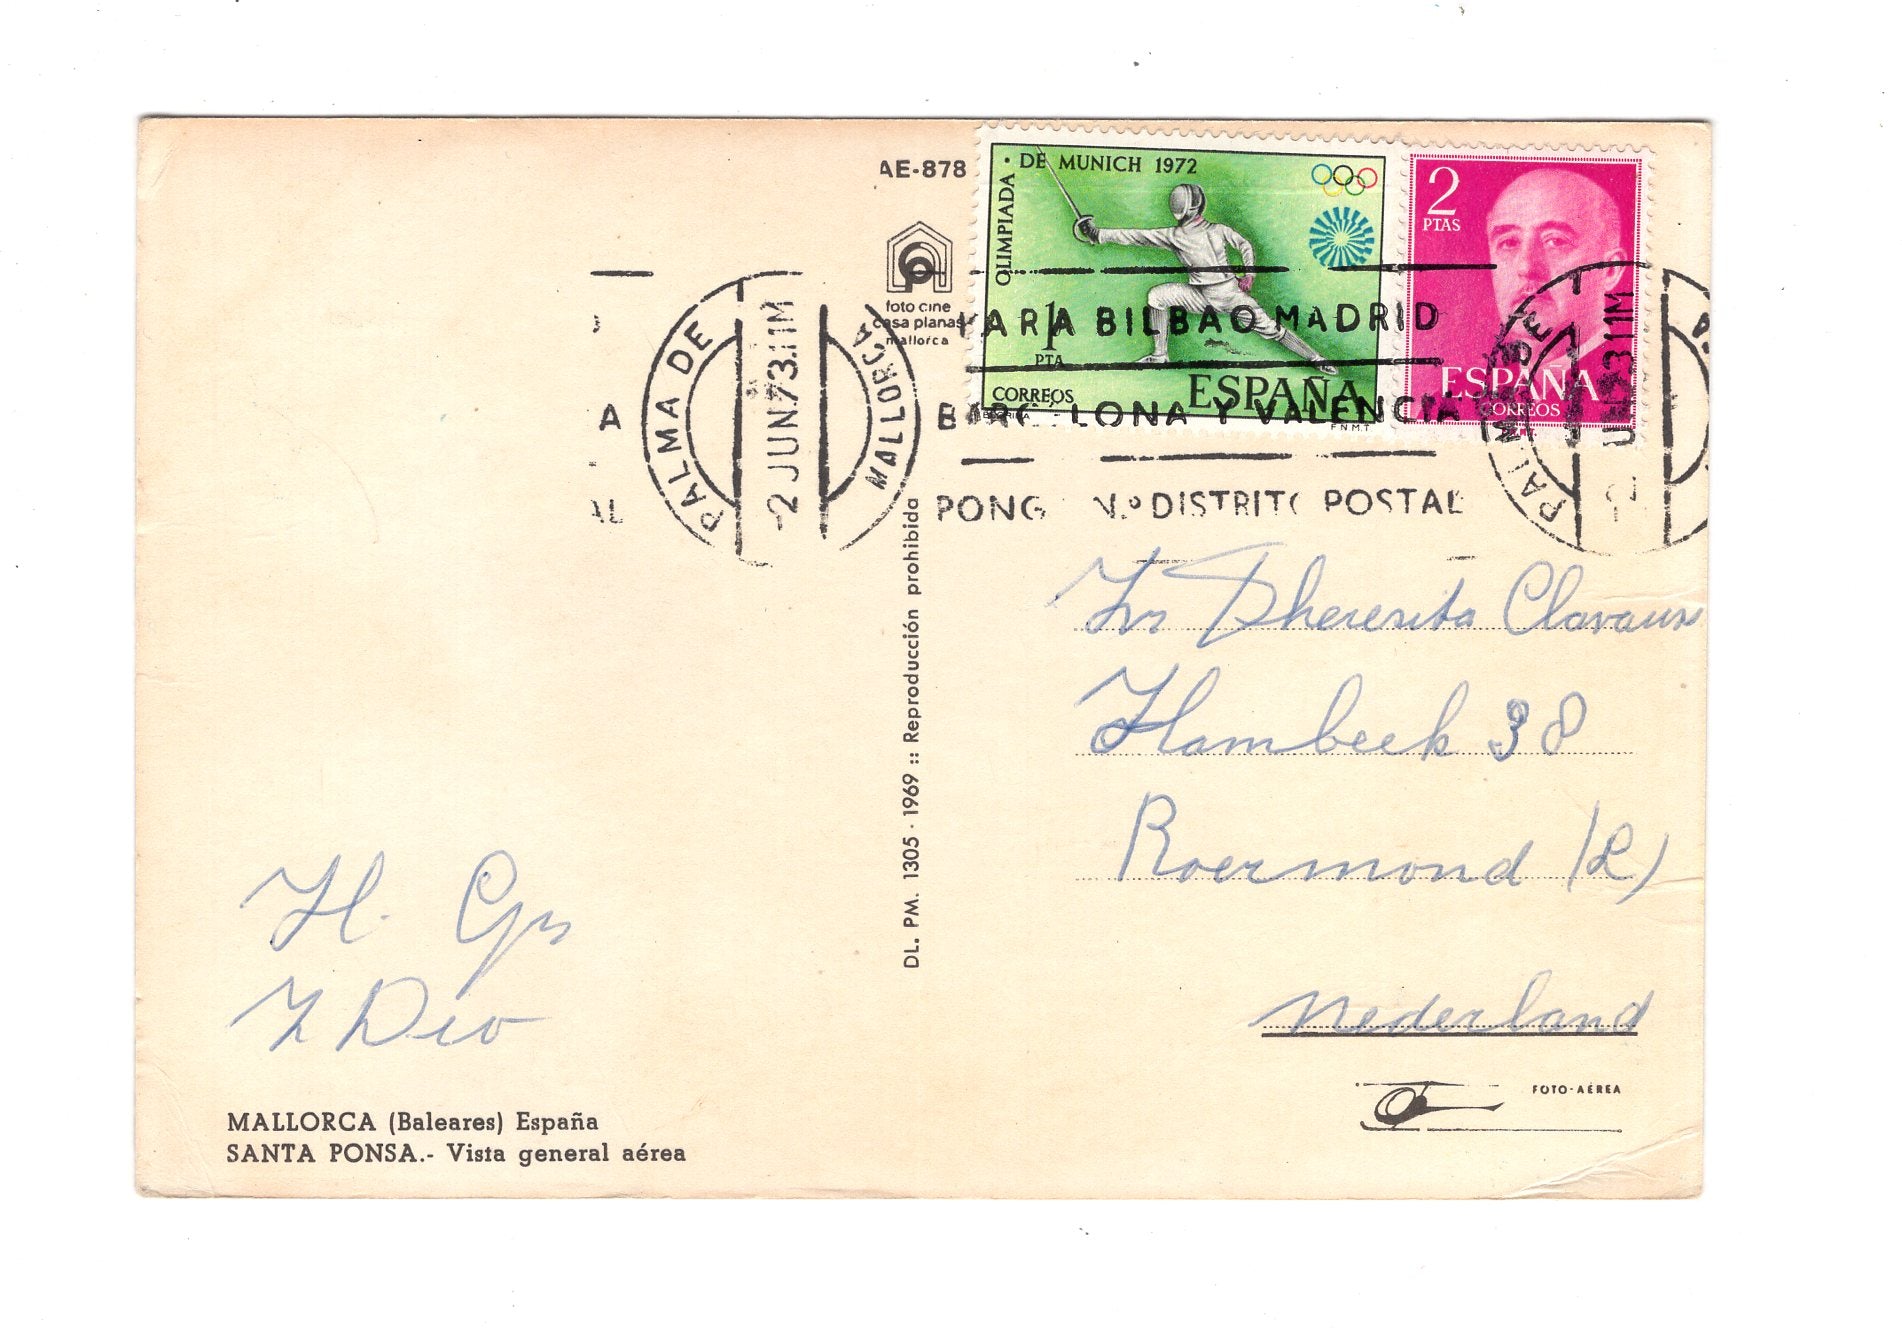 AE-878
foto cine
casa planas
mallorca
OLIMPIADA · DE MUNICH 1972
1
PTA
CORREOS
ESPAÑA
F.N.M.T.
2
PTAS
ESPAÑA
CORREOS
PALMA DE
MALLORCA
2 JUN.73.11M
PARA BILBAO MADRID
A
BARCELONA Y VALENCIA
AL
PONGA N.º DISTRITO POSTAL
PALMA DE
DL. PM. 1305 - 1969 :: Reproducción prohibida
Hambeek 38
Roermond (L)
Nederland
H. Grs
MALLORCA (Baleares) España
SANTA PONSA.- Vista general aérea
FOTO-AÉREA